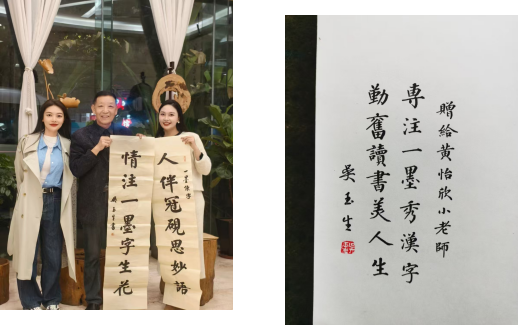 人伴冠硯思妙語
情注一墨字生花
贈給黃怡欣小老師
專注一墨秀漢字
勤奮讀書美人生
吳玉生